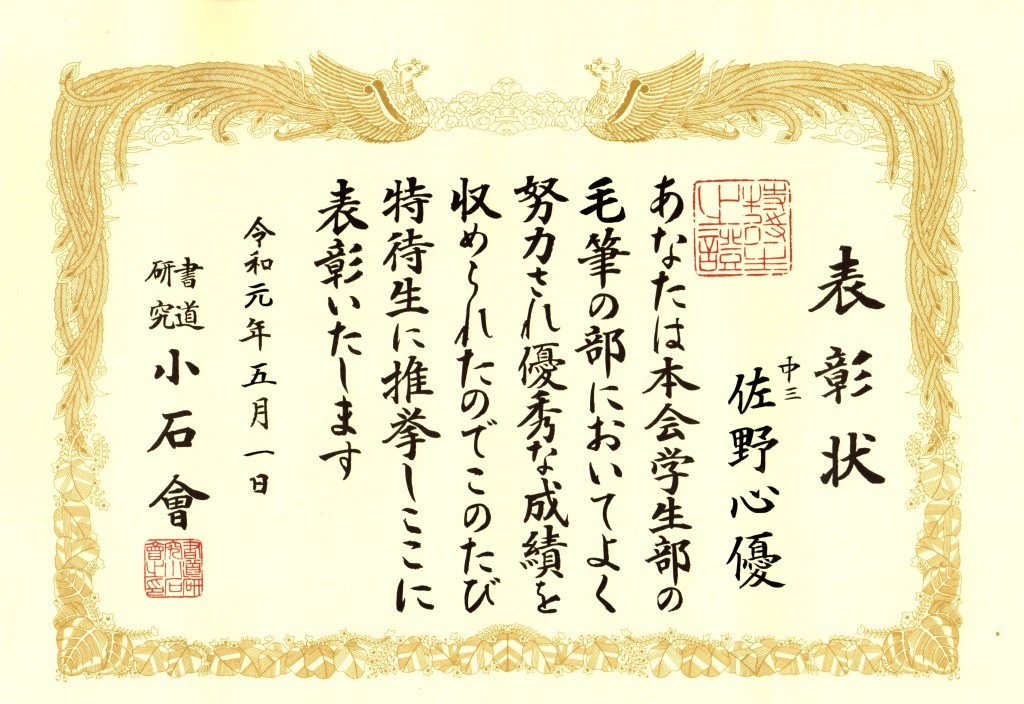 表彰状
中三
佐野心優
特待生
之證
あなたは本会学生部の
毛筆の部においてよく
努力され優秀な成績を
収められたのでこのたび
特待生に推挙しここに
表彰いたします
令和元年五月一日
書道
研究
小石會
書道研
究小石
會之印